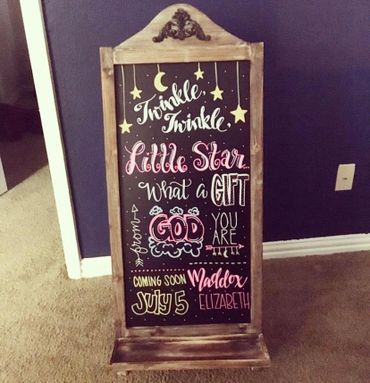 Twinkle,
Twinkle,
Little Star
What a GIFT
from GOD YOU ARE
COMING SOON
July 5
Maddox
ELIZABETH